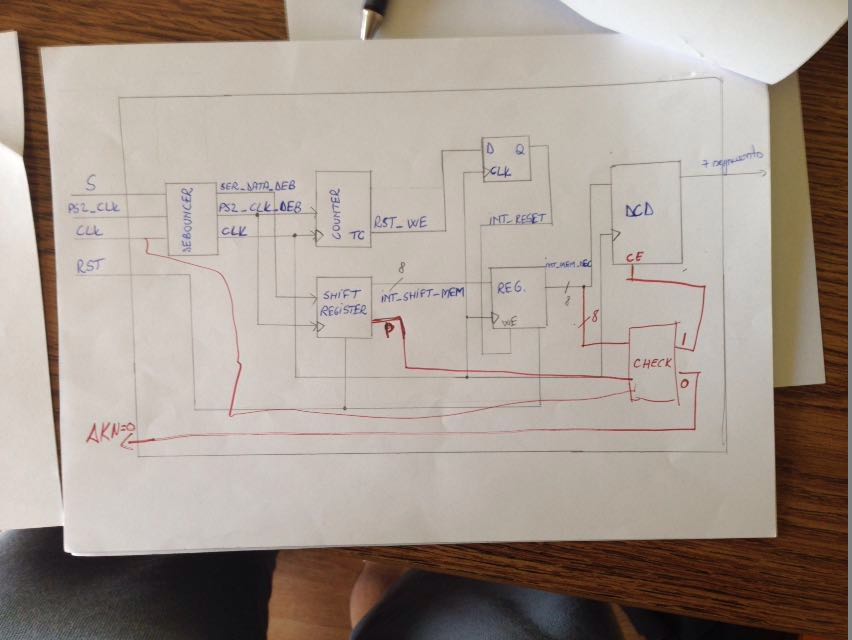 S
PS2_CLK
CLK
RST
DEBOUNCER
SER_DATA_DEB
PS2_CLK_DEB
CLK
COUNTER
TC
RST_WE
D Q
CLK
INT_RESET
SHIFT
REGISTER
8
INT_SHIFT_MEM
P
REG.
WE
INT_MEM_DEC
8
DCD
CE
7 segmento
8
CHECK
1
0
AKN=0